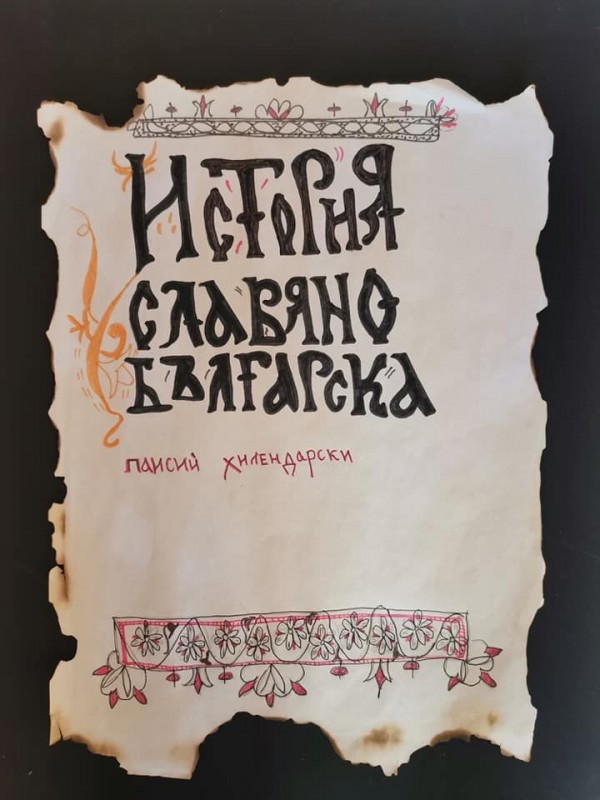 История
славяно
българска
паисий хилендарски